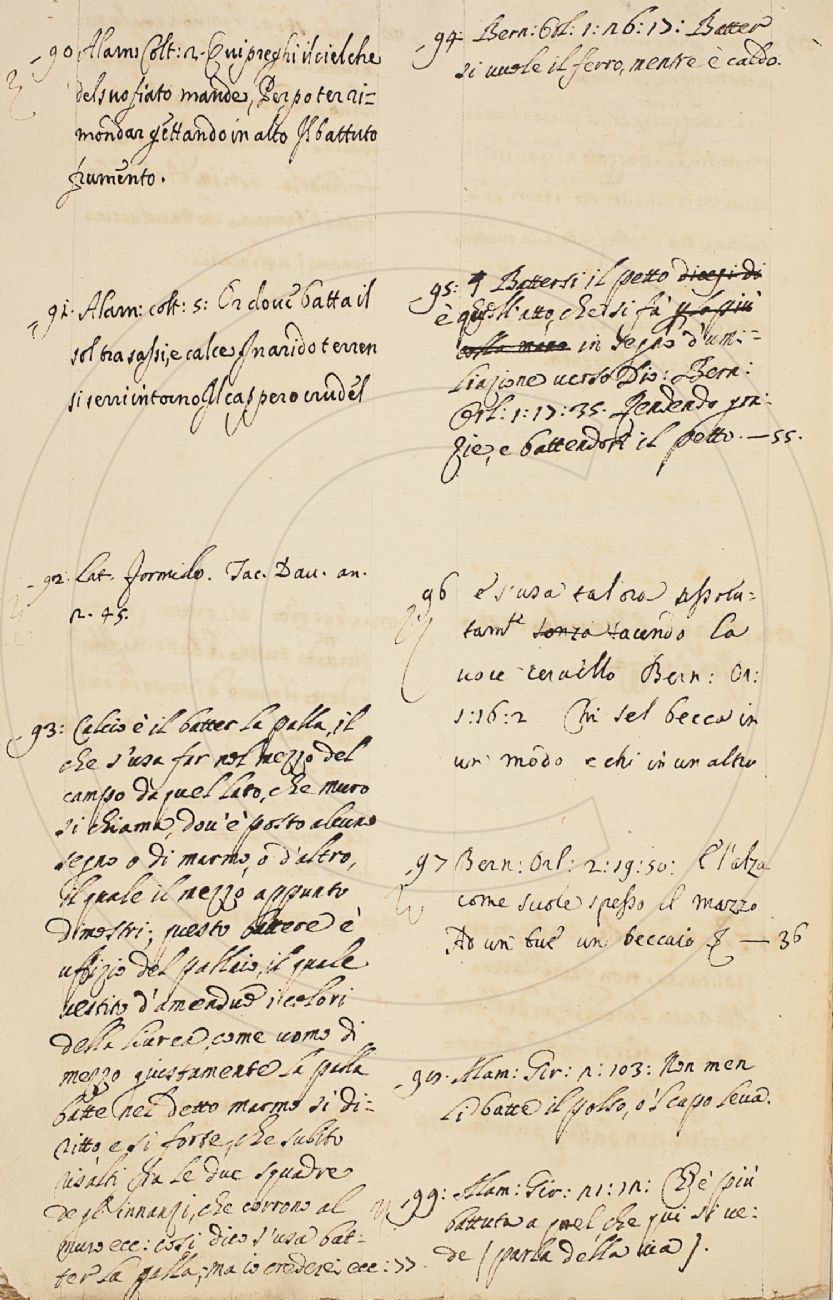 90. Alam: Colt: 2. Qui preghi il ciel che
del suo fiato mande, Per poter ri=
mondar gettando in alto Il battuto
frumento.
91. Alam: colt: 5: Or dove batta il
sol tra sassi, e calce In arido terren
si serri intorno Il cappero crudel
92. Lat. formido. Tac. Dav. an.
2. 45.
93: Calcio è il batter la palla, il
che s'usa far nel mezzo del
campo da quel lato, che muro
si chiama, dov'è posto alcuno
segno o di marmo, o d'altro,
il quale il mezzo appunto
dimostri; questo battere è
uffizio del pallaio, il quale
vestito d'amendue i colori
della livrea, come uomo di
mezzo giustamente la palla
batte nel detto marmo sì di=
ritto e sì forte, che subito
risalti fra le due squadre
degl'innanzi, che corrono al
muro ecc: così dico s'usa bat=
ter la palla; ma io crederei ecc: 77.
94: Bern: Orl: 1: 26: 17: Batter
si vuole il ferro, mentre è caldo.
95: Battersi il petto dicesi di
è quell'atto, che si fà
colla mano in segno d'umi=
liazione verso Dio: Bern:
Orl: 1: 17: 35. Rendendo gra=
zie, e battendosi il petto. — 55.
96 e s'usa talora assolu=
tamte senza tacendo la
voce cervello Bern: Or:
1:16:2 Chi sel becca in
un modo e chi in un altro
97 Bern: Orl: 2:19:50: E l'alza
come suole spesso il mazzo
Ad un bue un beccaio — 36
98. Alam: Gir: 2: 103: Non men
li batte il polso, o 'l capo leva.
99: Alam: Gir: 21: 12: Ch'è più
battuta a quel che qui si ve=
de [parla della via].